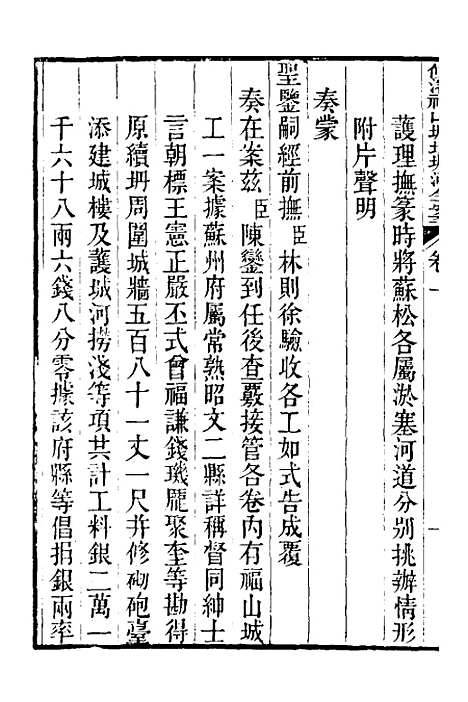 護理撫篆時將蘇松各屬淤塞河道分别挑辦情形
附片聲明
奏蒙
聖鑒嗣經前撫臣林則徐驗收各工如式告成覆
奏在案茲臣陳鑾到任後查覈接管各卷內有福山城
工一案據蘇州府屬常熟昭文二縣詳稱督同紳士
言朝標王憲正嚴丕式曾福謙錢璣龎聚奎等勘得
原續坍周圍城牆五百八十一丈一尺并修砌砲臺
添建城樓及護城河撈淺等項共計工料銀二萬一
千六十八兩六錢八分零據該府縣等倡捐銀兩率
卷一